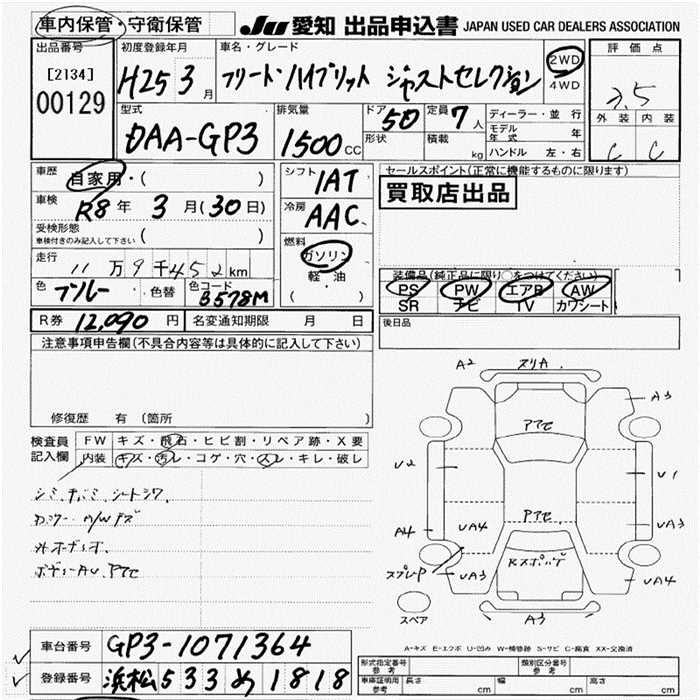 車内保管・守衛保管
JU 愛知 出品申込書 JAPAN USED CAR DEALERS ASSOCIATION
出品番号
[2134]
00129
初度登録年月
H25 3月
車名・グレード
フリードハイブリット ジャストセレクション
2WD
4WD
評価点
3.5
外装 内装
C C
型式
DAA-GP3
排気量
1500CC
ドア 5D
形状
定員 7人
積載 kg
ディーラー・並行
モデル年式 年
ハンドル 左・右
車歴 自家用・( )
車検 R8年 3月(30日)
受検形態
車検付きのみ記入して下さい ( )
走行 11万9千452km
色 ブルー 色替 色コード B578M
シフト 1AT
冷房 AAC
燃料
ガソリン
軽・油
( )
セールスポイント(正常に機能するものに限ります)
買取店出品
装備品(純正品に限り○をつけてください)
PS PW エアB AW
SR ナビ TV カワシート
R券 12,090円 名変通知期限 月 日
後日品
注意事項申告欄(不具合内容等は具体的に記入して下さい)
修復歴 有 (箇所
検査員記入欄
FW キズ・飛石・ヒビ割・リペア跡・X要
内装 キズ・汚レ・コゲ・穴・スレ・キレ・破レ
シミ、
シートシワ、
M/Wキズ
A2 スリA
A3
アマセ
U2 U1
アマセ
A4 UA4 UA4 UA3
スプレーP UA3 UA4
A3
スペア
A-キズ E-エクボ U-凹み W-補修跡 S-サビ C-腐食 XX-交換済
車台番号 GP3-1071364
登録番号 浜松 533 め 1818
形式指定番号 参考
類別区分番号 参考
車庫証明用 参考 長さ cm 幅 cm 高さ cm